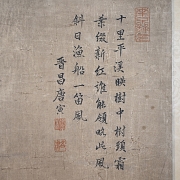 十里平溪映樹中樹頭霜
葉綴新紅誰能領此風
斜日漁船一笛風
晋昌唐寅